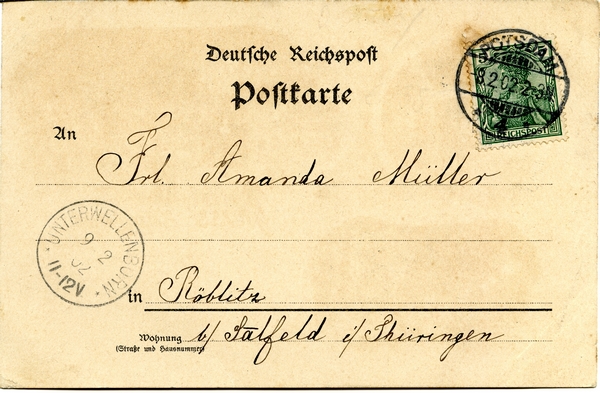 Deutsche Reichspost
Postkarte
POTSDAM
8.2.02.2-3N
REICHSPOST
An
Frl. Amanda Müller
UNTERWELLENBORN
9 2
02
11-12V
in Röblitz
Wohnung b/ Salfeld i/ Thüringen
(Straße und Hausnummer)